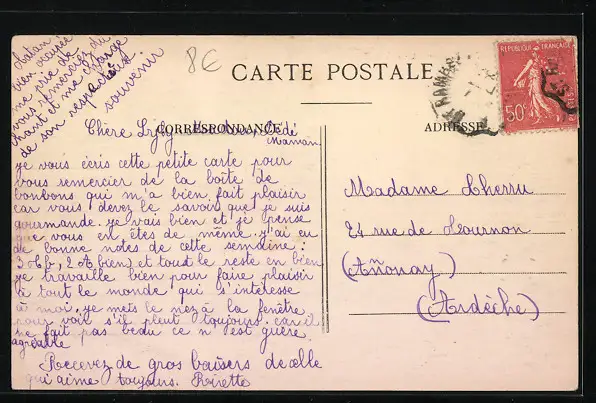 Maman bien occupée
me prie de
vous remercier du
chant et me charge
de son respectueux
souvenir
8€
CARTE POSTALE
RÉPUBLIQUE FRANÇAISE
50c
CORRESPONDANCE
ADRESSE
Chère
Maman
je vous écris cette petite carte pour
vous remercier de la boîte de
bonbons qui m'a bien fait plaisir
car vous devez le savoir que je suis
gourmande. je vais bien et je pense
que vous en êtes de même. j'ai eu
de bonne notes de cette semaine :
3 2 A bien) et tout le reste en bien
je travaille bien pour faire plaisir
à tout le monde qui s'intéresse
à moi. je mets le nez à la fenêtre
pour voir s'il pleut toujours. car il
ne fait pas beau ce n'est guère
agréable
Recevez de gros baisers de celle
qui aime toujours. Rirette
Madame Cherru
24 rue de Tournon
(Añonay)
(Ardèche)